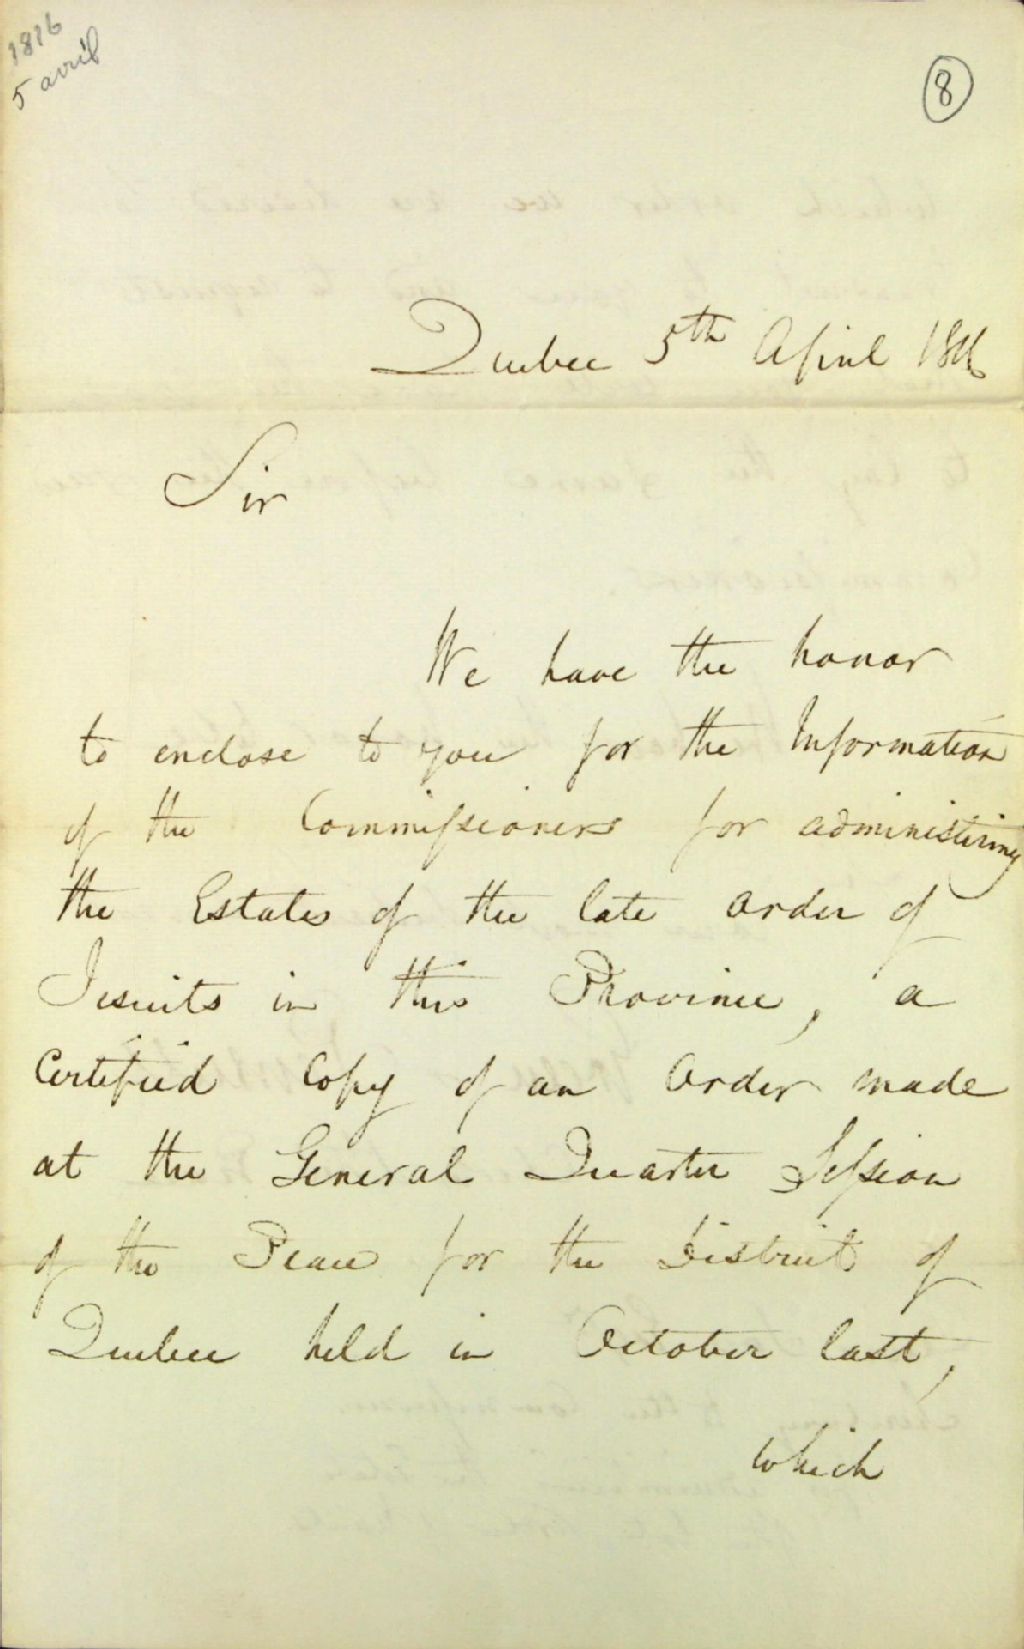 1816
5 avril
8
Quebec 5th April 1816
Sir
We have the honor
to enclose to you for the Information
of the Commissioners for administering
the Estates of the late order of
Jesuits in this Province, a
Certified Copy of an Order made
at the General Quarter Session
of the Peace for the District of
Quebec held in October last,
which